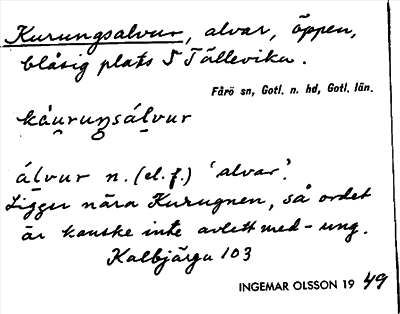 Kurungsalvur, alvar, öppen,
blåsig plats S Tällevika.
Fårö sn, Gotl. n. hd, Gotl. län.
kåurungsálvur
álvur n. (el. f.) 'alvar'.
Ligger nära Kurugnen, så ordet
är kanske inte avlett med -ung.
Kalbjärga 103
INGEMAR OLSSON 19 49